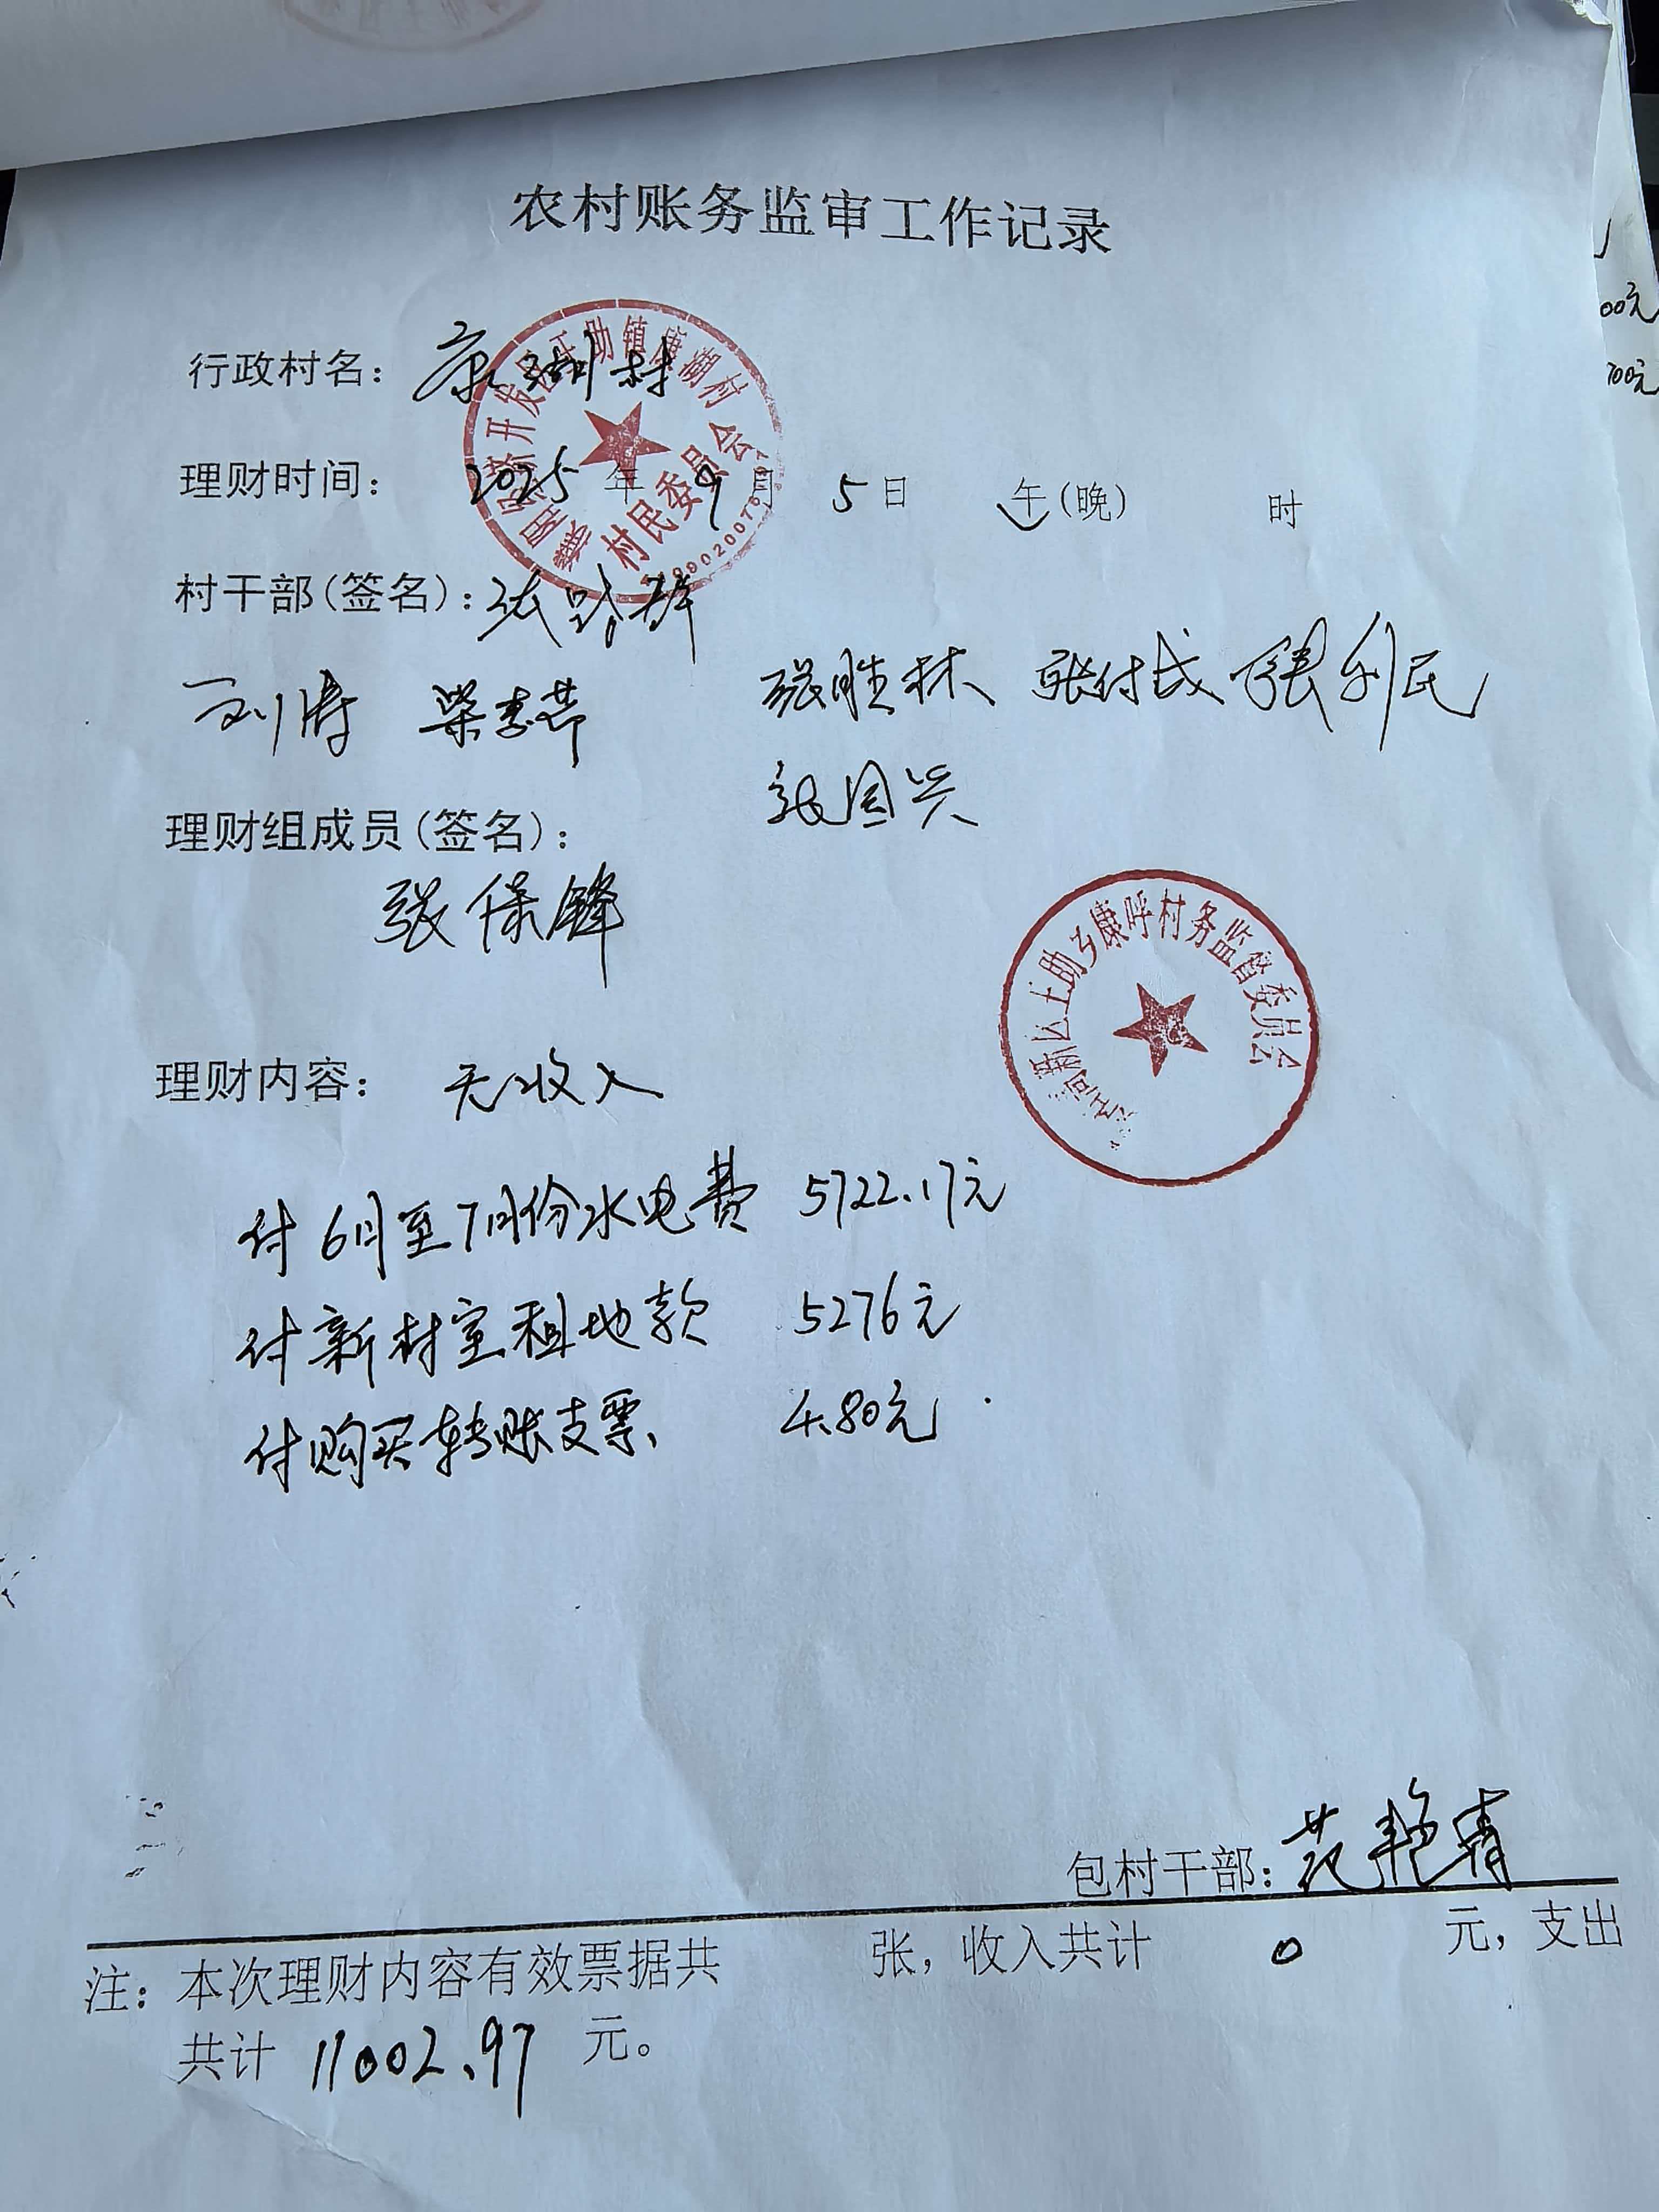 农村账务监审工作记录
行政村名：康湖村
理财时间：2025年9月5日 午(晚) 时
村干部(签名)：
刘涛 张胜林 张付成 张利民
张国兴
理财组成员(签名)：
张保锋
理财内容： 无收入
付6月至7月份水电费 5722.17元
付新村室租地款 5276元
付购买转账支票 4.80元
村民委员会
王助乡康呼村务监督委员会
包村干部：范艳青
注：本次理财内容有效票据共 张，收入共计 0 元，支出
共计 11002.97 元。
00元
700元